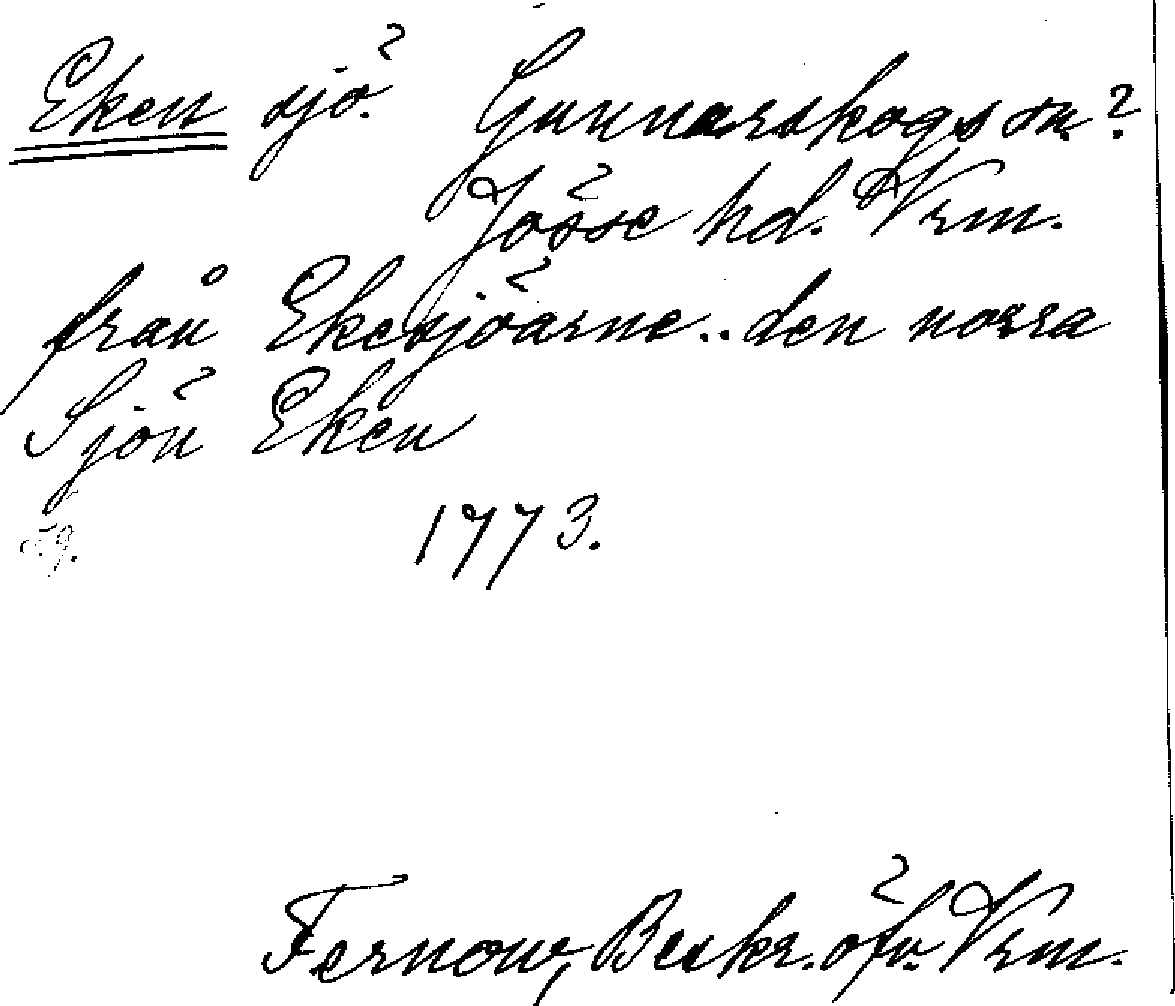 Eken sjö. Gunnarskogs sn.?
Jösse hd. Vrm.
från Ekesjöarne.. den norra
Sjön Eken
1773.
Fernow, Beskr. öfv. Vrm.